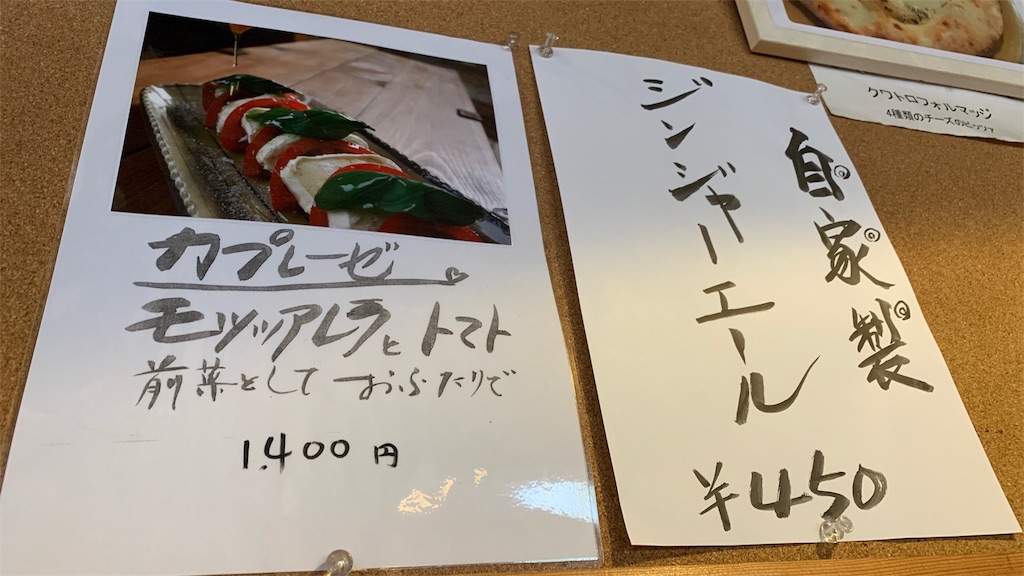 カプレーゼ
モッツァレラとトマト
前菜として おふたりで
1,400 円
自家製
ジンジャーエール
¥450
クワトロフォルマッジ
4種類のチーズのピッツァ